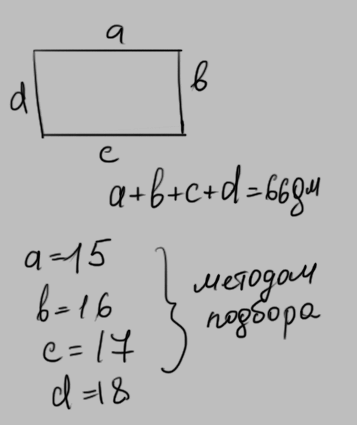 a
d
b
c
a+b+c+d=66дм
a=15
b=16
c=17
d=18
методом
подбора